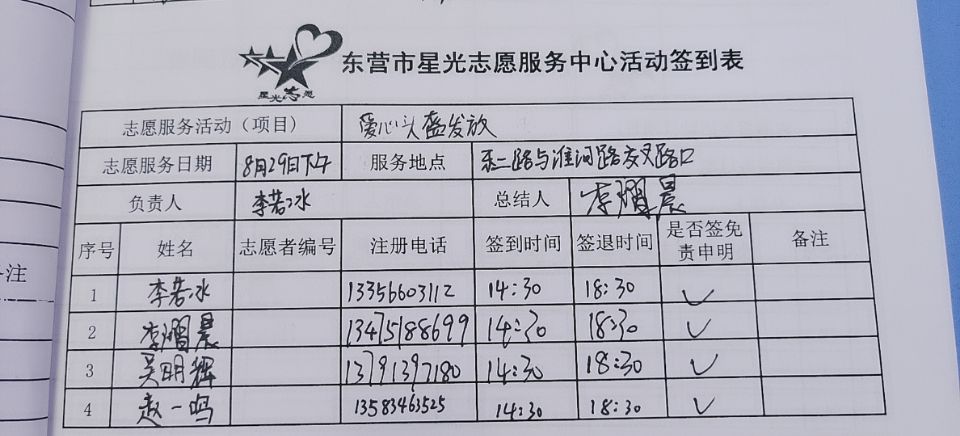 星光志愿
东营市星光志愿服务中心活动签到表
志愿服务活动（项目） 爱心头盔发放
志愿服务日期 8月29日下午 服务地点 东二路与淮河路交叉路口
负责人 李若冰 总结人 李熠晨
序号 姓名 志愿者编号 注册电话 签到时间 签退时间 是否签免责申明 备注
1 李若冰 13356603112 14:30 18:30 ✓
2 李熠晨 13475188699 14:30 18:30 ✓
3 吴明辉 13791397180 14:30 18:30 ✓
4 赵一鸣 13583463525 14:30 18:30 ✓
注